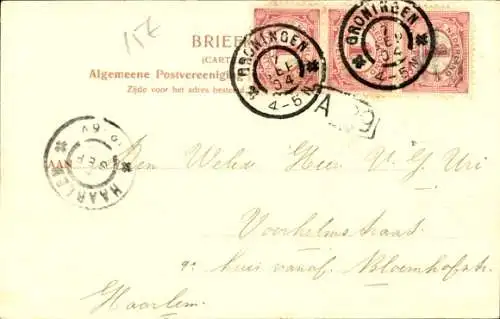 15k
BRIEF
(CART
Algemeene Postvereenig
Zijde voor het adres bestem
GRONINGEN
SEP
04
4-5N
GRONINGEN
SEP
04
4-5N
A
HAARLEM
SEP
AAN Den Weled. Heer V. G. Uri
Voorhelmstraat
9e huis vanaf Bloemhofstr.
Haarlem.